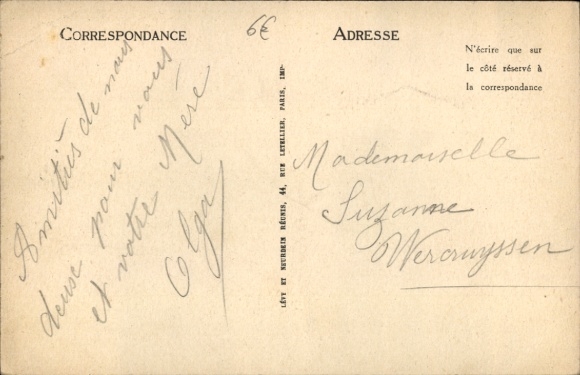 CORRESPONDANCE
6€
ADRESSE
N'écrire que sur
le côté réservé à
la correspondance
Amitiés de nous
deuse pour vous
et votre Mére
Olga
LÉVY ET NEURDEIN RÉUNIS, 44, RUE LETELLIER, PARIS, IMP-
Mademoiselle
Suzanne
Wercruyssen